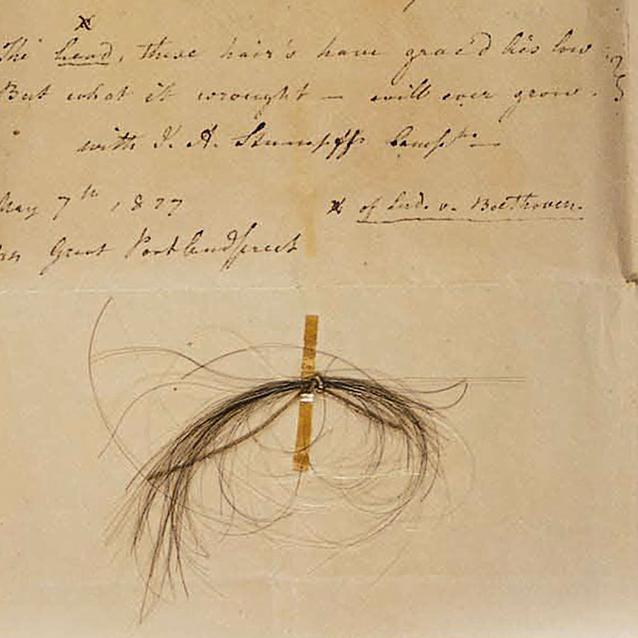 x
The head, these hair's have grac'd lies low
But what it wrought — will ever grow.
with J. A. Stumpffs Compts —
May 7th, 1827
x of Lud. v. Beethoven.
Great Portlandstreet